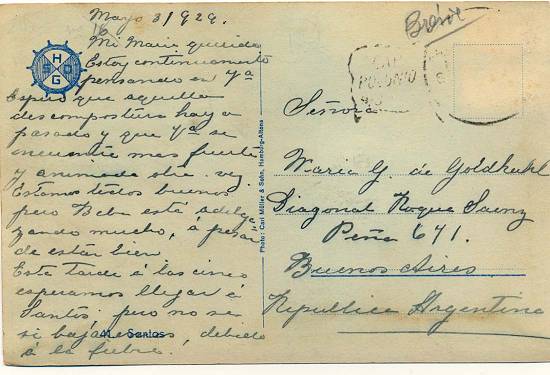 Mayo 3/929.
Mi Maria querida
Estoy continuamente
pensando en
Espero que aquella
descompostura haya
pasado y que Vd se
encuentre mas fuerte
y animada otra vez.
Estamos todos buenos
pero Bebe está adelga-
zando mucho, á pesar
de estár bien
Esta tarde á las cinco
esperamos llegar á
Santos pero no se
si bajáremos, debido
á la fiebre.
41 Santos
H
S D
G
Photo: Carl Müller & Sohn, Hamburg-Altona
CAP
POLONIO
Señora
Maria G de Goldkuhl
Diagonal Roque Saenz
Peña 641.
Buenos Aires
Republica Argentina